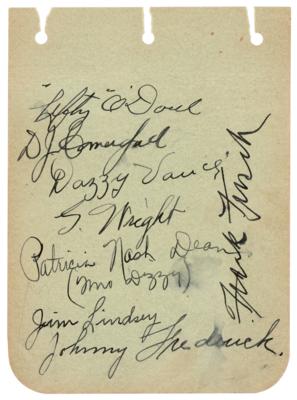 "Lefty" O'Doul
D J
Dazzy Vance
G. Wright
Patricia Nash Dean
(Mrs Dizzy)
Jim Lindsey
Johnny Frederick.
Frank Frisch